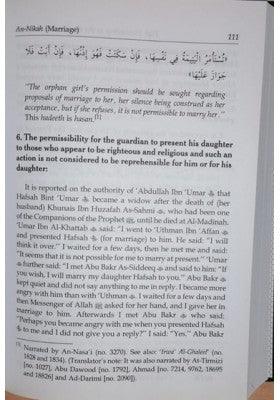 An-Nikah (Marriage)
111
«تُسْتَأْمَرُ الْيَتِيمَةُ فِي نَفْسِهَا، فَإِنْ سَكَتَتْ فَهُوَ إِذْنُهَا، فَإِنْ أَبَتْ فَلَا
جَوَازَ عَلَيْهَا»
"The orphan girl's permission should be sought regarding
proposals of marriage to her, her silence being construed as her
acceptance, but if she refuses, it is not permissible to marry her."
This hadeeth is hasan.[1]
6. The permissibility for the guardian to present his daughter
to those who appear to be righteous and religious and such an
action is not considered to be reprehensible for him or for his
daughter:
It is reported on the authority of 'Abdullah Ibn 'Umar that
Hafsah Bint 'Umar became a widow after the death of (her
husband) Khunais Ibn Huzafah As-Sahmi, who had been one
of the Companions of the Prophet, until he died at Al-Madinah.
'Umar Ibn Al-Khattab said: "I went to 'Uthman Ibn 'Affan
and presented Hafsah (for marriage) to him. He said: "I will
think it over." I waited for a few days, then he met me and said:
"It seems that it is not possible for me to marry at present." 'Umar
further said: "I met Abu Bakr As-Siddeeq and said to him: "If
you wish, I will marry my daughter Hafsah to you." Abu Bakr
kept quiet and did not say anything to me in reply. I became more
angry with him than with 'Uthman. I waited for a few days and
then Messenger of Allah asked for her hand, and I gave her in
marriage to him. Afterwards I met Abu Bakr who said:
"Perhaps you became angry with me when you presented Hafsah
to me and I did not give you a reply?" I said: "Yes." Abu Bakr
[1] Narrated by An-Nasa'i (no. 3270). See also 'Irwa' Al-Ghaleel' (no.
1828 and 1834). (Translator's note: It was also narrated by At-Tirmizi
[no. 1027], Abu Dawood [no. 1792], Ahmad [no. 7214, 9762, 18695
and 18826] and Ad-Darimi [no. 2090]).